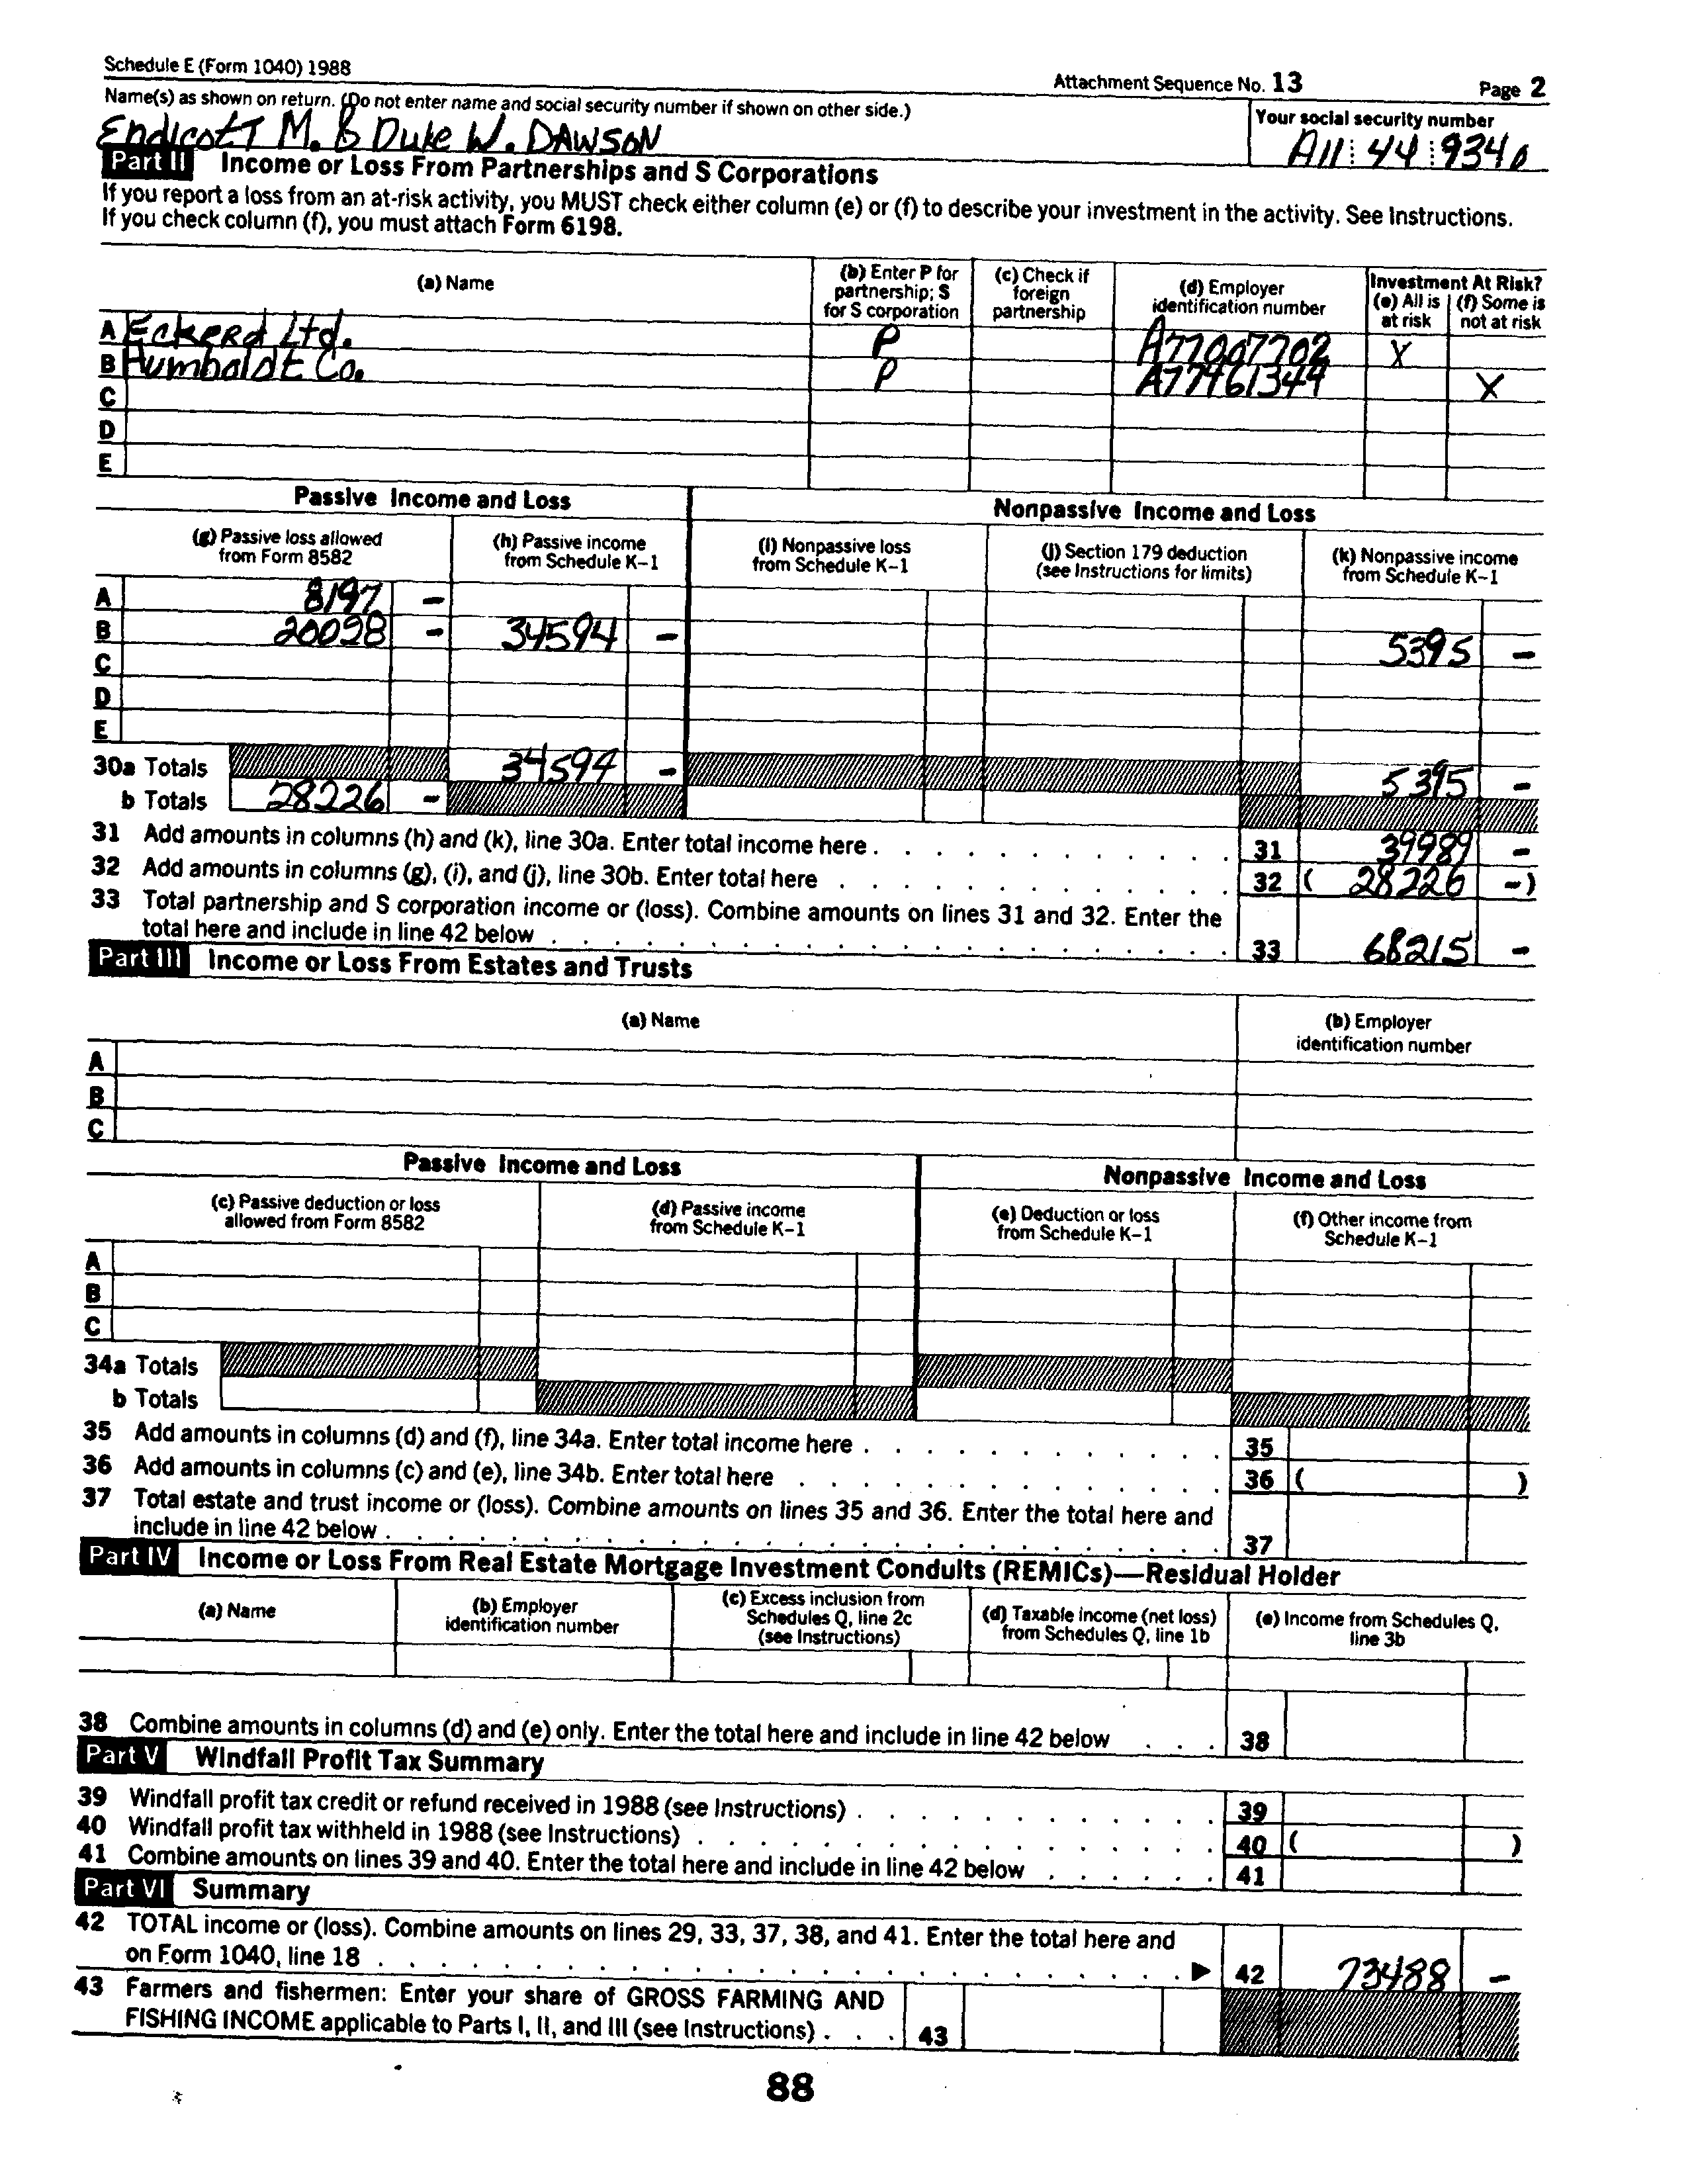 Schedule E (Form 1040) 1988
Attachment Sequence No. 13 Page 2
Name(s) as shown on return. (Do not enter name and social security number if shown on other side.)
Your social security number
Endicott M. & Duke W. DAWSON
A11 : 44 : 9340
Part II Income or Loss From Partnerships and S Corporations
If you report a loss from an at-risk activity, you MUST check either column (e) or (f) to describe your investment in the activity. See Instructions.
If you check column (f), you must attach Form 6198.
(a) Name
(b) Enter P for partnership; S for S corporation
(c) Check if foreign partnership
(d) Employer identification number
Investment At Risk?
(e) All is at risk
(f) Some is not at risk
A Eckerd Ltd. P A77007702 X
B Humboldt Co. P A77461344 X
C
D
E
Passive Income and Loss
Nonpassive Income and Loss
(g) Passive loss allowed from Form 8582
(h) Passive income from Schedule K-1
(i) Nonpassive loss from Schedule K-1
(j) Section 179 deduction (see Instructions for limits)
(k) Nonpassive income from Schedule K-1
A 8197 -
B 20028 - 34594 - 5395 -
C
D
E
30a Totals 34594 - 5395 -
b Totals 28226 -
31 Add amounts in columns (h) and (k), line 30a. Enter total income here . . . 31 39989 -
32 Add amounts in columns (g), (i), and (j), line 30b. Enter total here . . . 32 ( 28226 - )
33 Total partnership and S corporation income or (loss). Combine amounts on lines 31 and 32. Enter the
total here and include in line 42 below . . . 33 68215 -
Part III Income or Loss From Estates and Trusts
(a) Name
(b) Employer identification number
A
B
C
Passive Income and Loss
Nonpassive Income and Loss
(c) Passive deduction or loss allowed from Form 8582
(d) Passive income from Schedule K-1
(e) Deduction or loss from Schedule K-1
(f) Other income from Schedule K-1
A
B
C
34a Totals
b Totals
35 Add amounts in columns (d) and (f), line 34a. Enter total income here . . . 35
36 Add amounts in columns (c) and (e), line 34b. Enter total here . . . 36 ( )
37 Total estate and trust income or (loss). Combine amounts on lines 35 and 36. Enter the total here and
include in line 42 below . . . 37
Part IV Income or Loss From Real Estate Mortgage Investment Conduits (REMICs)—Residual Holder
(a) Name
(b) Employer identification number
(c) Excess inclusion from Schedules Q, line 2c (see Instructions)
(d) Taxable income (net loss) from Schedules Q, line 1b
(e) Income from Schedules Q, line 3b
38 Combine amounts in columns (d) and (e) only. Enter the total here and include in line 42 below . . . 38
Part V Windfall Profit Tax Summary
39 Windfall profit tax credit or refund received in 1988 (see Instructions) . . . 39
40 Windfall profit tax withheld in 1988 (see Instructions) . . . 40 ( )
41 Combine amounts on lines 39 and 40. Enter the total here and include in line 42 below . . . 41
Part VI Summary
42 TOTAL income or (loss). Combine amounts on lines 29, 33, 37, 38, and 41. Enter the total here and
on Form 1040, line 18 . . . ▶ 42 73488 -
43 Farmers and fishermen: Enter your share of GROSS FARMING AND
FISHING INCOME applicable to Parts I, II, and III (see Instructions) . . . 43
88